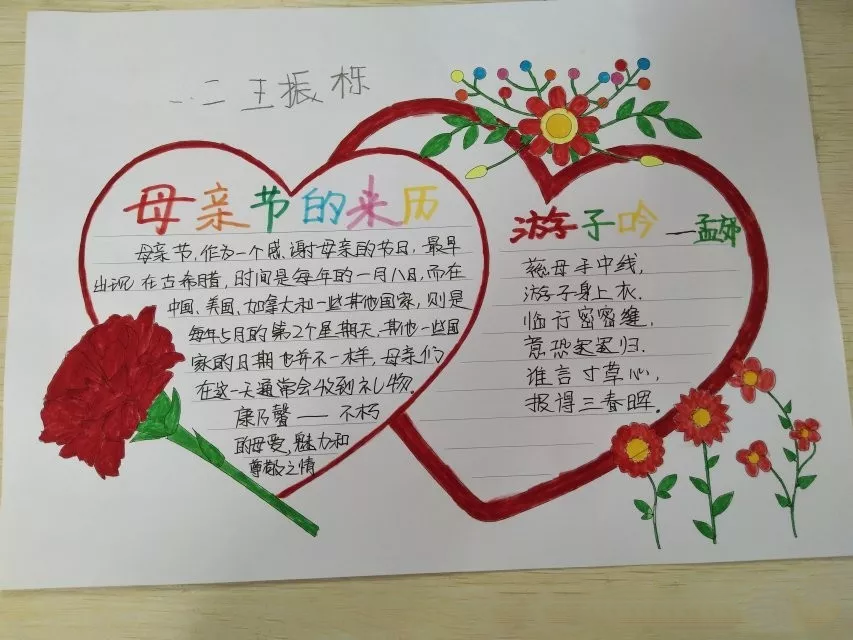 一.二 王振栎
母亲节的来历
母亲节,作为一个感谢母亲的节日,最早
出现在古希腊,时间是每年的一月八日,而在
中国、美国、加拿大和一些其他国家,则是
每年5月的第2个星期天,其他一些国
家的日期也并不一样,母亲们
在这一天通常会收到礼物.
康乃馨——不朽
的母爱,魅力和
尊敬之情
游子吟 —孟郊
慈母手中线,
游子身上衣.
临行密密缝,
意恐迟迟归.
谁言寸草心,
报得三春晖.